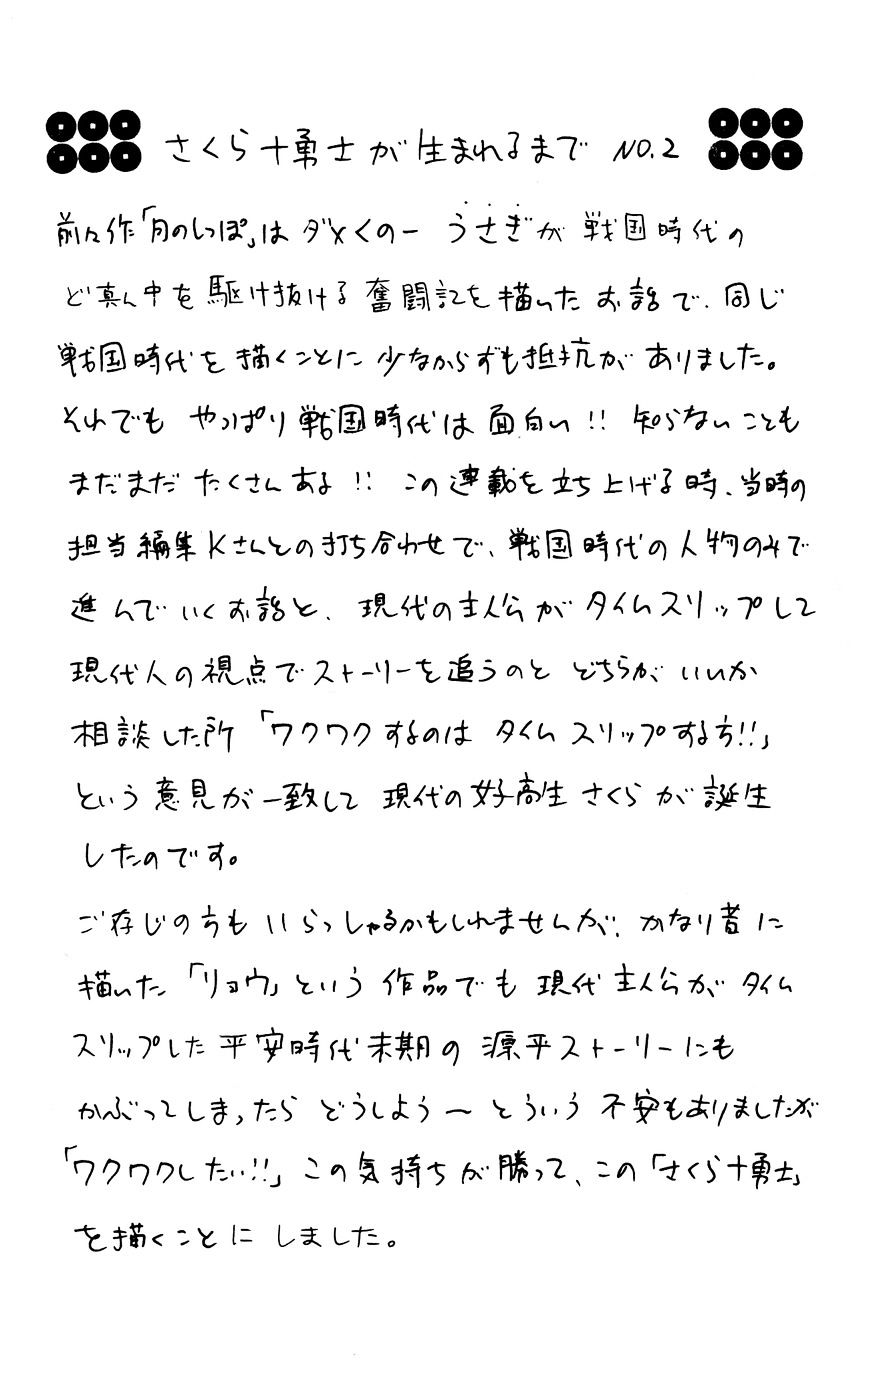 さくら十勇士が生まれるまで NO.2
前々作「月のしっぽ」は ダメくの一 うさぎが 戦国時代の
ど真ん中を駆け抜ける 奮闘記を描いたお話で、同じ
戦国時代を描くことに 少なからずも抵抗がありました。
それでも やっぱり戦国時代は 面白い!! 知らないことも
まだまだ たくさんある!! この連載を立ち上げる時、当時の
担当編集Kさんとの打ち合わせで、戦国時代の人物のみで
進んでいくお話と、現代の主人公がタイムスリップして
現代人の視点でストーリーを追うのと どちらが いいか
相談した所「ワクワクするのは タイムスリップする方!!」
という意見が一致して 現代の女子高生 さくらが誕生
したのです。
ご存じの方も いらっしゃるかもしれませんが、かなり昔に
描いた「リョウ」という作品でも 現代主人公が タイム
スリップした 平安時代末期の 源平ストーリーにも
かぶってしまったら どうしよう〜 とういう 不安もありましたが
「ワクワクしたい!!」この気持ちが勝って、この「さくら十勇士」
を描くことに しました。